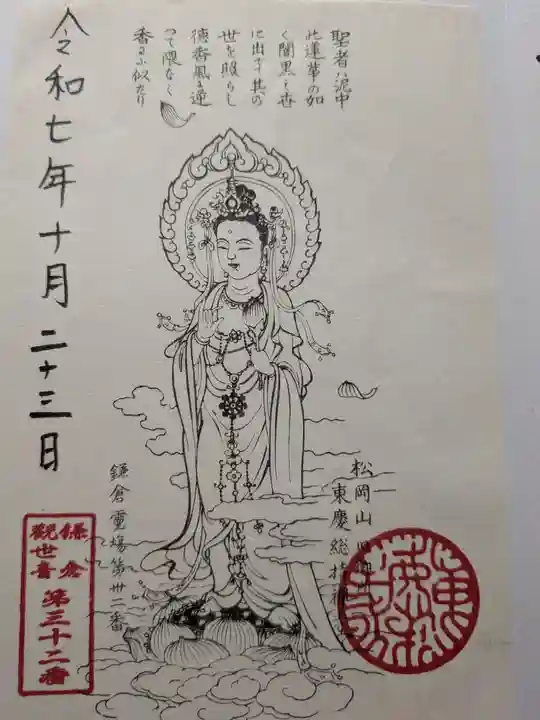 聖者ハ泥中
此蓮華の如
く闇黒之世
に出す其の
世を照らし
徳香風に逆
って隈なく
香るに似たり
令和七年十月二十三日
松岡山
東慶総持禅
鎌倉霊場第卅二番
鎌倉
觀世音
第三十二番